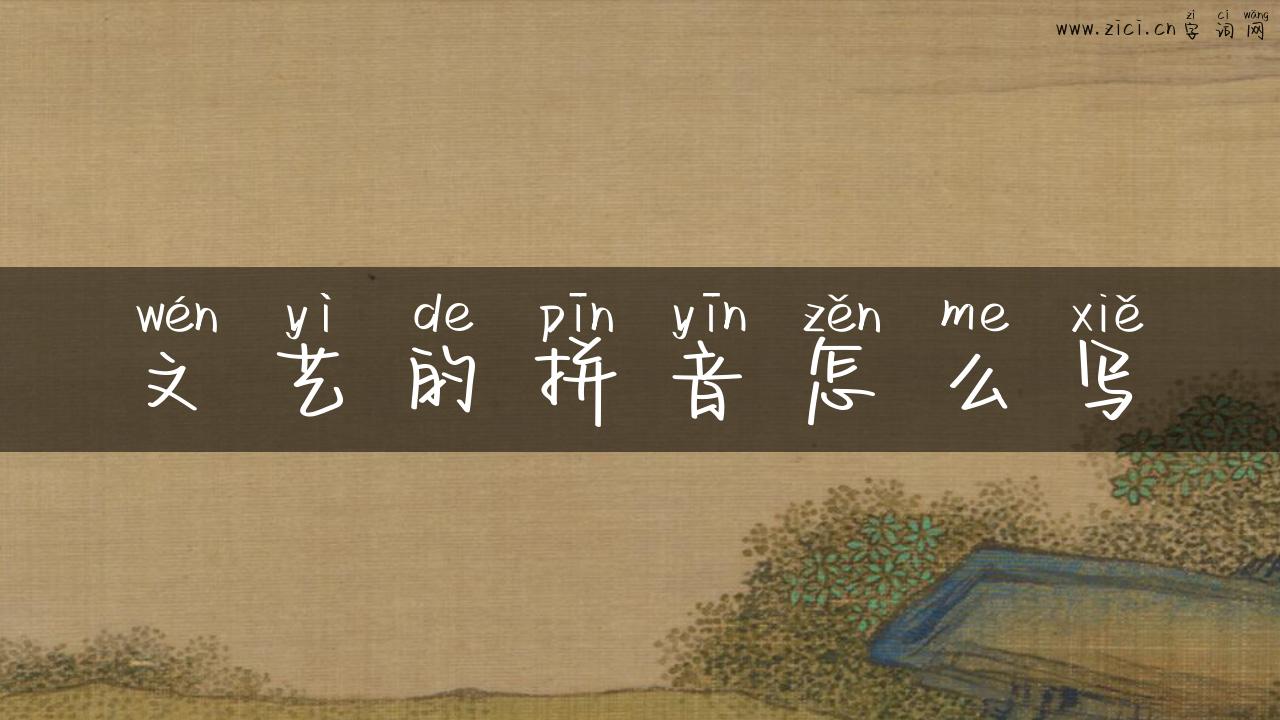 zì cí wǎng
www.zici.cn 字词网
wén yì de pīn yīn zěn me xiě
文艺的拼音怎么写